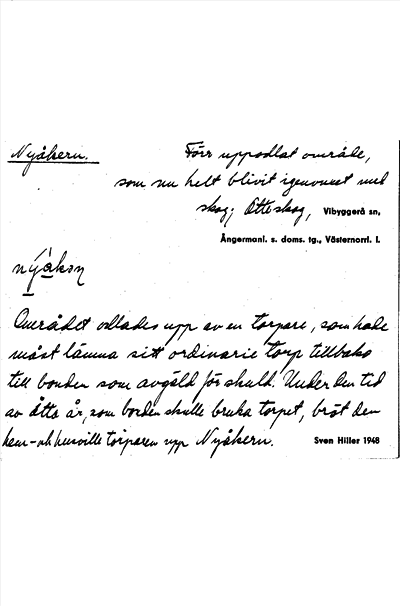 Nyåkern.
Förr uppodlat område,
som nu helt blivit igenvuxet med
skog; Ötteskog, Vibyggerå sn,
Ångermanl. s. doms. tg., Västernorrl. l.
nyakən
Området odlades upp av en torpare, som hade
måst lämna sitt ordinarie torp tillbaka
till bonden som avgäld för skuld. Under den tid
av åtta år, som bonden skulle bruka torpet, bröt den
hem- och husville torparen upp Nyåkern.
Sven Hiller 1948